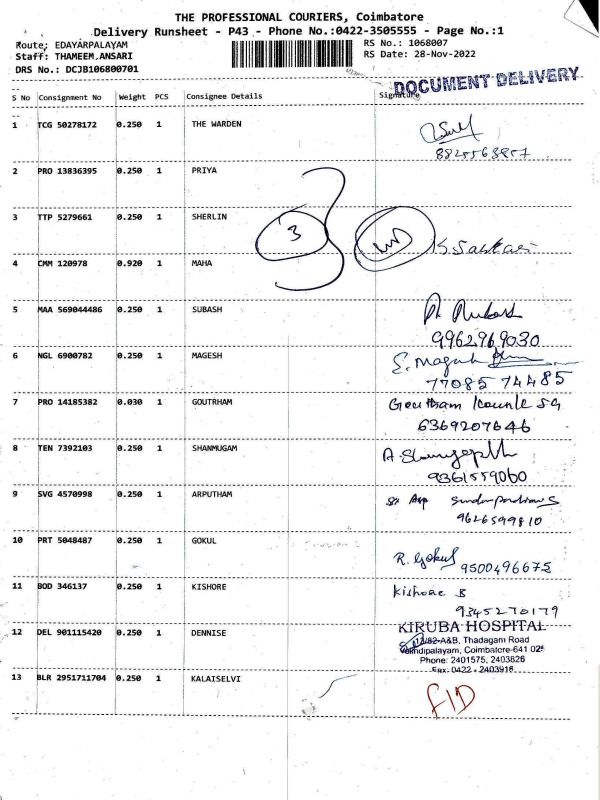 THE PROFESSIONAL COURIERS, Coimbatore
Delivery Runsheet - P43 - Phone No.:0422-3505555 - Page No.:1
Route: EDAYARPALAYAM RS No.: 1068007
Staff: THAMEEM ANSARI RS Date: 28-Nov-2022
DRS No.: DCJB106800701
DOCUMENT DELIVERY
S No Consignment No Weight PCS Consignee Details Signature
1 TCG 50278172 0.250 1 THE WARDEN
2 PRO 13836395 0.250 1 PRIYA
3 TTP 5279661 0.250 1 SHERLIN 3
4 CMM 120978 0.920 1 MAHA
5 MAA 569044486 0.250 1 SUBASH
9962969030
6 NGL 6900782 0.250 1 MAGESH S. Magesh
77085 74485
7 PRO 14185382 0.030 1 GOUTRHAM Goutham
6369207646
8 TEN 7392103 0.250 1 SHANMUGAM
9361559060
9 SVG 4570998 0.250 1 ARPUTHAM
9626599810
10 PRT 5048487 0.250 1 GOKUL R. Gokul
9500496675
11 BOD 346137 0.250 1 KISHORE Kishore B
9345270179
12 DEL 901115420 0.250 1 DENNISE KIRUBA HOSPITAL
A&B, Thadagam Road
Coimbatore-641 025
Phone: 2401575, 2403826
Fax: 0422 - 2403916
13 BLR 2951711704 0.250 1 KALAISELVI